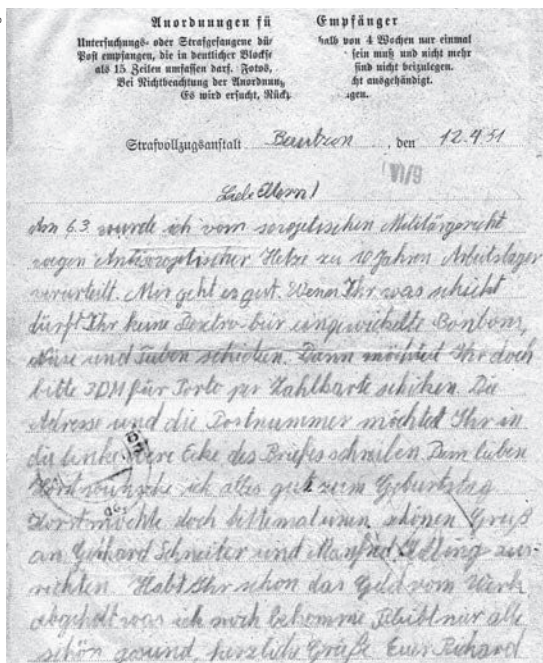 Anordnungen fü Empfänger
Untersuchungs- oder Strafgefangene dü- halb von 4 Wochen nur einmal
Post empfangen, die in deutlicher Blocks sein muß und nicht mehr
als 15 Zeilen umfassen darf. Fotos, sind nicht beizulegen.
Bei Nichtbeachtung der Anordnung ht ausgehändigt.
Es wird ersucht, Rück gen.
Strafvollzugsanstalt Bautzen, den 12.4.51
VI/9
Liebe Eltern!
Am 6.3. wurde ich vom sowjetischen Militärgericht
wegen Antisowjetischer Hetze zu 10 Jahren Arbeitslager
verurteilt. Mir geht es gut. Wenn Ihr was schickt
dürft Ihr keine Dextro-bür eingewickelte Bonbons,
und Tuben schicken. Dann möchtet Ihr doch
bitte 3DM für Porto per Zahlkarte schiken. Die
Adresse und die Postnummer möchted Ihr in
die linke obere Ecke des Briefes schreiben. Dem lieben
Horst wünsche ich alles gute zum Geburtstag
Horst möchte doch bittemal einen schönen Gruß
an Gerhard Schneiter und Manfred aus-
richten. Habt Ihr schon das Geld vom Werk
abgeholt was ich noch bekomme. Bleibt nur alle
schön gesund, herzliche Grüße Euer Richard